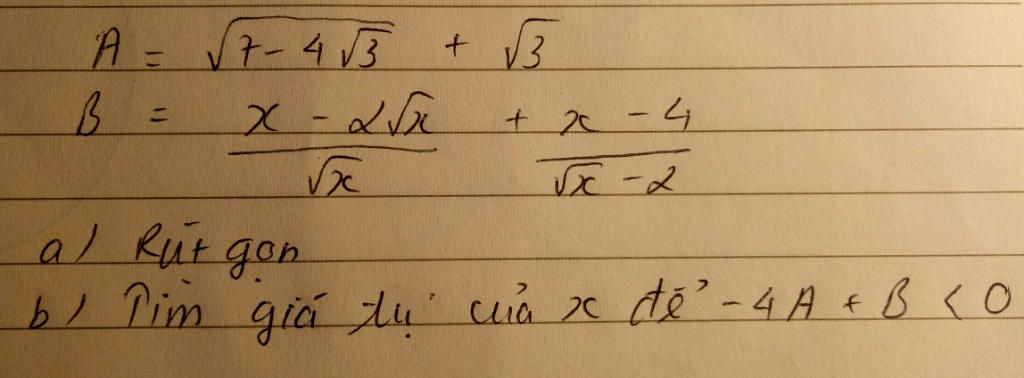 A = √(7 - 4√3) + √3
B = (x - 2√x)/√x + (x - 4)/(√x - 2)
a) Rút gọn
b) Tìm giá trị của x để -4A + B < 0